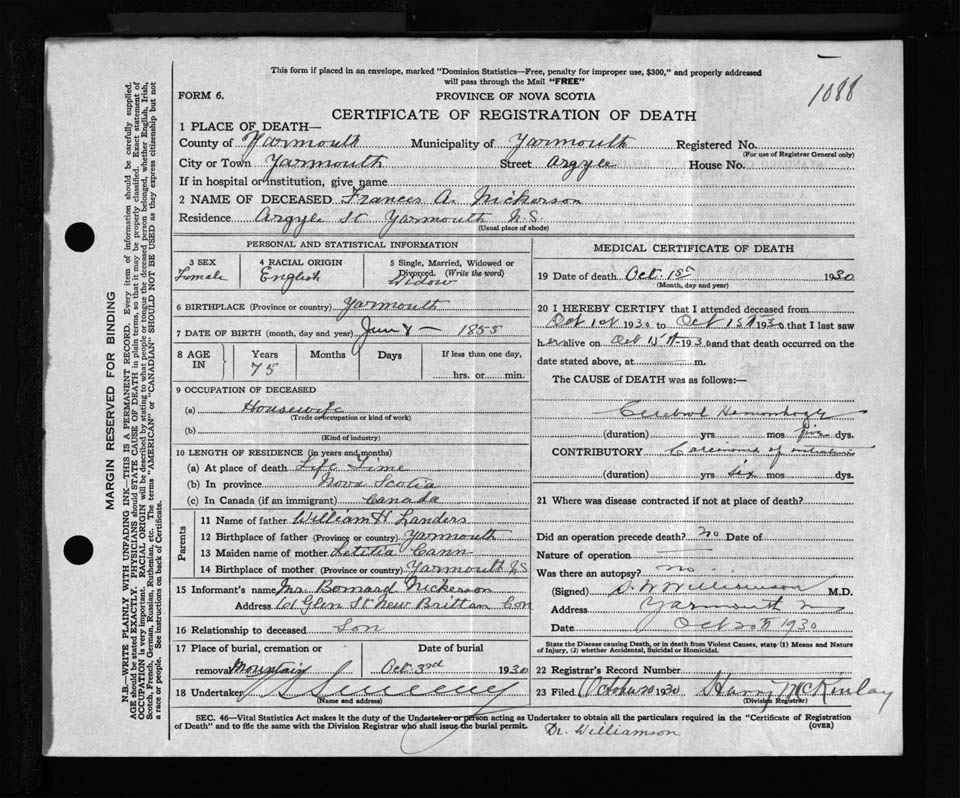 This form if placed in an envelope, marked "Dominion Statistics—Free, penalty for improper use, $300," and properly addressed
will pass through the Mail "FREE"
1088
FORM 6.
PROVINCE OF NOVA SCOTIA
CERTIFICATE OF REGISTRATION OF DEATH
1 PLACE OF DEATH—
County of Yarmouth Municipality of Yarmouth Registered No.
(For use of Registrar General only)
City or Town Yarmouth Street Argyle House No.
If in hospital or institution, give name
2 NAME OF DECEASED Frances A. Nickerson
Residence Argyle St Yarmouth N.S
(Usual place of abode)
PERSONAL AND STATISTICAL INFORMATION
3 SEX 4 RACIAL ORIGIN 5 Single, Married, Widowed or
Divorced. (Write the word)
Female English Widow
6 BIRTHPLACE (Province or country) Yarmouth
7 DATE OF BIRTH (month, day and year) June 8 — 1855
8 AGE IN Years Months Days If less than one day,
75
hrs. or min.
9 OCCUPATION OF DECEASED
(a) Housewife
(Trade or occupation or kind of work)
(b)
(Kind of industry)
10 LENGTH OF RESIDENCE (in years and months)
(a) At place of death Life Time
(b) In province Nova Scotia
(c) In Canada (if an immigrant) Canada
Parents
11 Name of father William H Landers
12 Birthplace of father (Province or country) Yarmouth
13 Maiden name of mother Letetia Cann
14 Birthplace of mother (Province or country) Yarmouth NS
15 Informant's name Nickerson
Address Glen St New Brittan Con
16 Relationship to deceased Son
17 Place of burial, cremation or Date of burial
removal Mountain Oct. 3rd 1930
18 Undertaker Sweeney
(Name and address)
MEDICAL CERTIFICATE OF DEATH
19 Date of death Oct. 1st 1930
(Month, day and year)
20 I HEREBY CERTIFY that I attended deceased from
Oct 1st 1930 to Oct 1st 1930 that I last saw
her alive on Oct 1st 1930 and that death occurred on the
date stated above, at m.
The CAUSE OF DEATH was as follows:—
Cerebral Hemorrhage
(duration) yrs mos five dys.
CONTRIBUTORY Carcinoma of
(duration) yrs six mos dys.
21 Where was disease contracted if not at place of death?
Did an operation precede death? no Date of
Nature of operation —
Was there an autopsy? no
(Signed) Williamson M.D.
Address Yarmouth NS
Date Oct 20th 1930
State the Disease causing Death, or in death from Violent Causes, state (1) Means and Nature
of Injury, (2) whether Accidental, Suicidal or Homicidal.
22 Registrar's Record Number
23 Filed October 20 1930 Harry McKinlay
(Division Registrar)
SEC. 46—Vital Statistics Act makes it the duty of the Undertaker or person acting as Undertaker to obtain all the particulars required in the "Certificate of Registration
of Death" and to file the same with the Division Registrar who shall issue the burial permit. (OVER)
Dr. Williamson
MARGIN RESERVED FOR BINDING
N.B.—WRITE PLAINLY WITH UNFADING INK—THIS IS A PERMANENT RECORD. Every item of information should be carefully supplied.
AGE should be stated EXACTLY. PHYSICIANS should STATE CAUSE OF DEATH in plain terms, so that it may be properly classified. Exact statement of
OCCUPATION is very important. RACIAL ORIGIN will be described by stating to what people or tongue the deceased person belonged, whether English, Irish,
Scotch, French, German, Russian, Ruthenian, etc. The terms "AMERICAN" or "CANADIAN" SHOULD NOT BE USED as they express citizenship but not
a race or people. See instructions on back of Certificate.